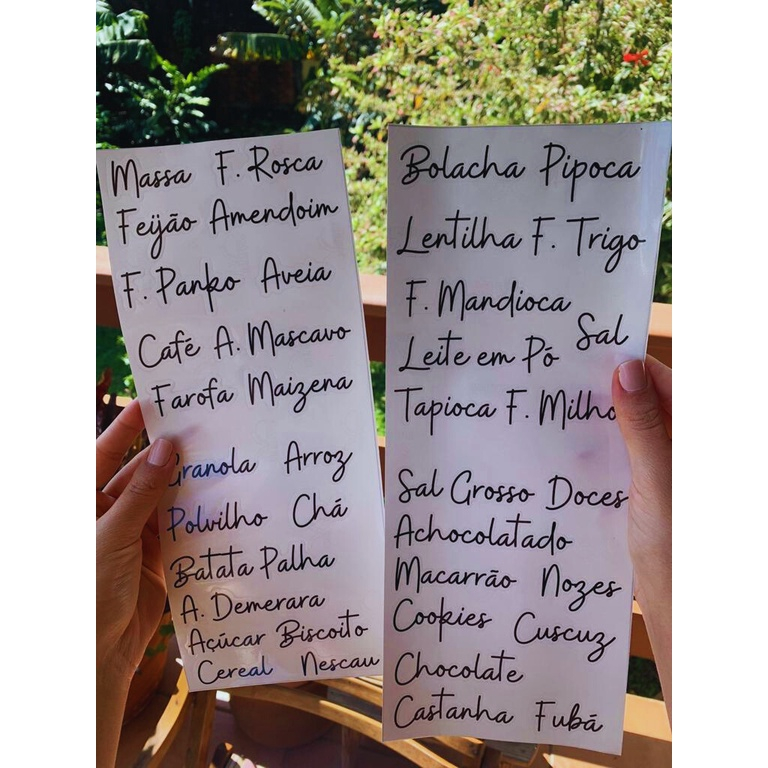 Massa F. Rosca
Feijão Amendoim
F. Panko Aveia
Café A. Mascavo
Farofa Maizena
Granola Arroz
Polvilho Chá
Batata Palha
A. Demerara
Açúcar Biscoito
Cereal Nescau
Bolacha Pipoca
Lentilha F. Trigo
F. Mandioca
Leite em Pó Sal
Tapioca F. Milho
Sal Grosso Doces
Achocolatado
Macarrão Nozes
Cookies Cuscuz
Chocolate
Castanha Fubá